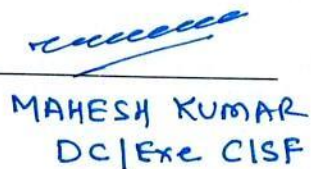 MAHESH KUMAR
DC/Exe CISF